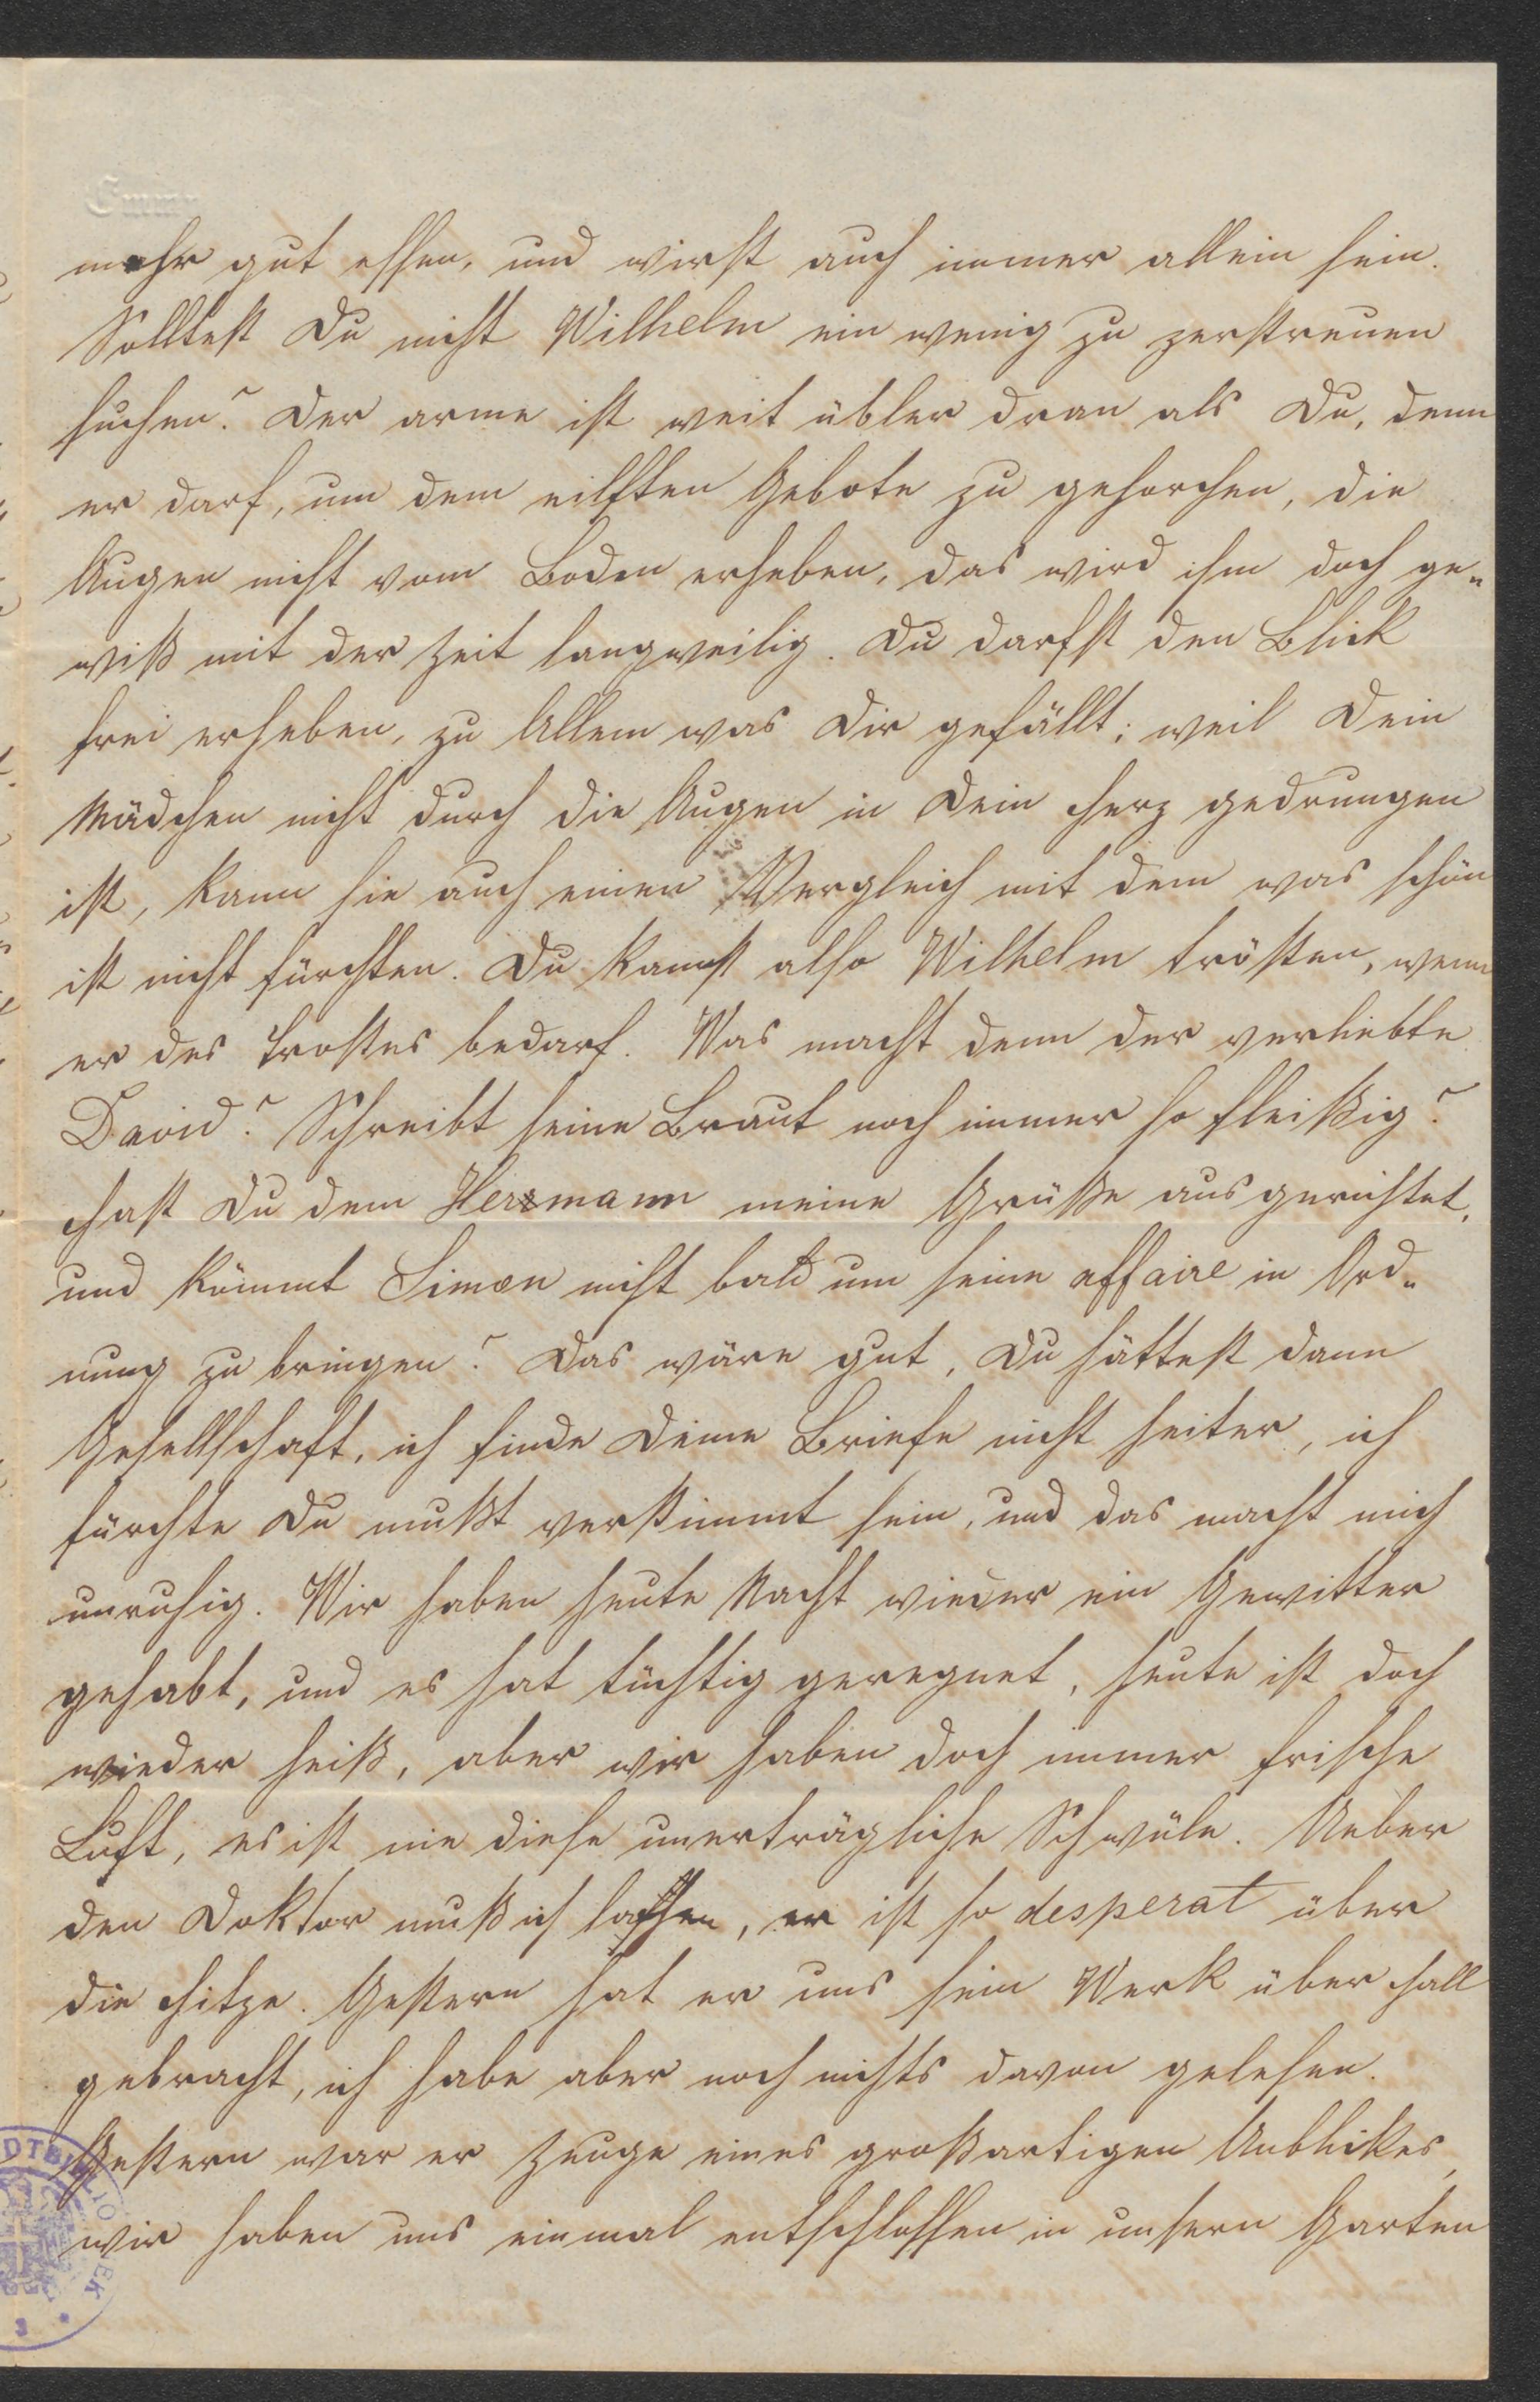 Emmy
mehr gut essen, und wirst auch immer allein sein.
Solltest Du nicht Wilhelm ein wenig zu zerstreuen
suchen? Der arme ist weit übler dran als Du, denn
er darf, um dem eilften Gebote zu gehorchen, die
Augen nicht vom Boden erheben, das wird ihm doch ge„
wiß mit der Zeit langweilig. Du darfst den Blick
frei erheben, zu Allem was Dir gefällt; weil Dein
Mädchen nicht durch die Augen in Dein Herz gedrungen
ist, kann sie auch einen Vergleich mit dem was schön
ist nicht fürchten. Du kannst also Wilhelm trösten, wenn
er des Trostes bedarf. Was macht denn der verliebte
David? Schreibt seine Braut noch immer so fleißig?
Hast Du dem Herzmann meine Grüße ausgerichtet,
und kömmt Simon nicht bald um seine affaire in Ord„
nung zu bringen? Das wäre gut, Du hättest dann
Gesellschaft, ich finde Deine Briefe nicht heiter, ich
fürchte Du mußt verstimmt sein, und das macht mich
unruhig. Wir haben heute Nacht wieder ein Gewitter
gehabt, und es hat tüchtig geregnet, heute ist doch
wieder heiß, aber wir haben doch immer frische
Luft, es ist nie diese unerträgliche Schwüle. Ueber
den Doktor muß ich lachen, er ist so desperat über
die Hitze. Gestern hat er uns sein Werk über Hall
gebracht, ich habe aber noch nichts davon gelesen.
Gestern war er Zeuge eines großartigen Anblickes,
wir haben uns einmal entschlossen in unsern Garten